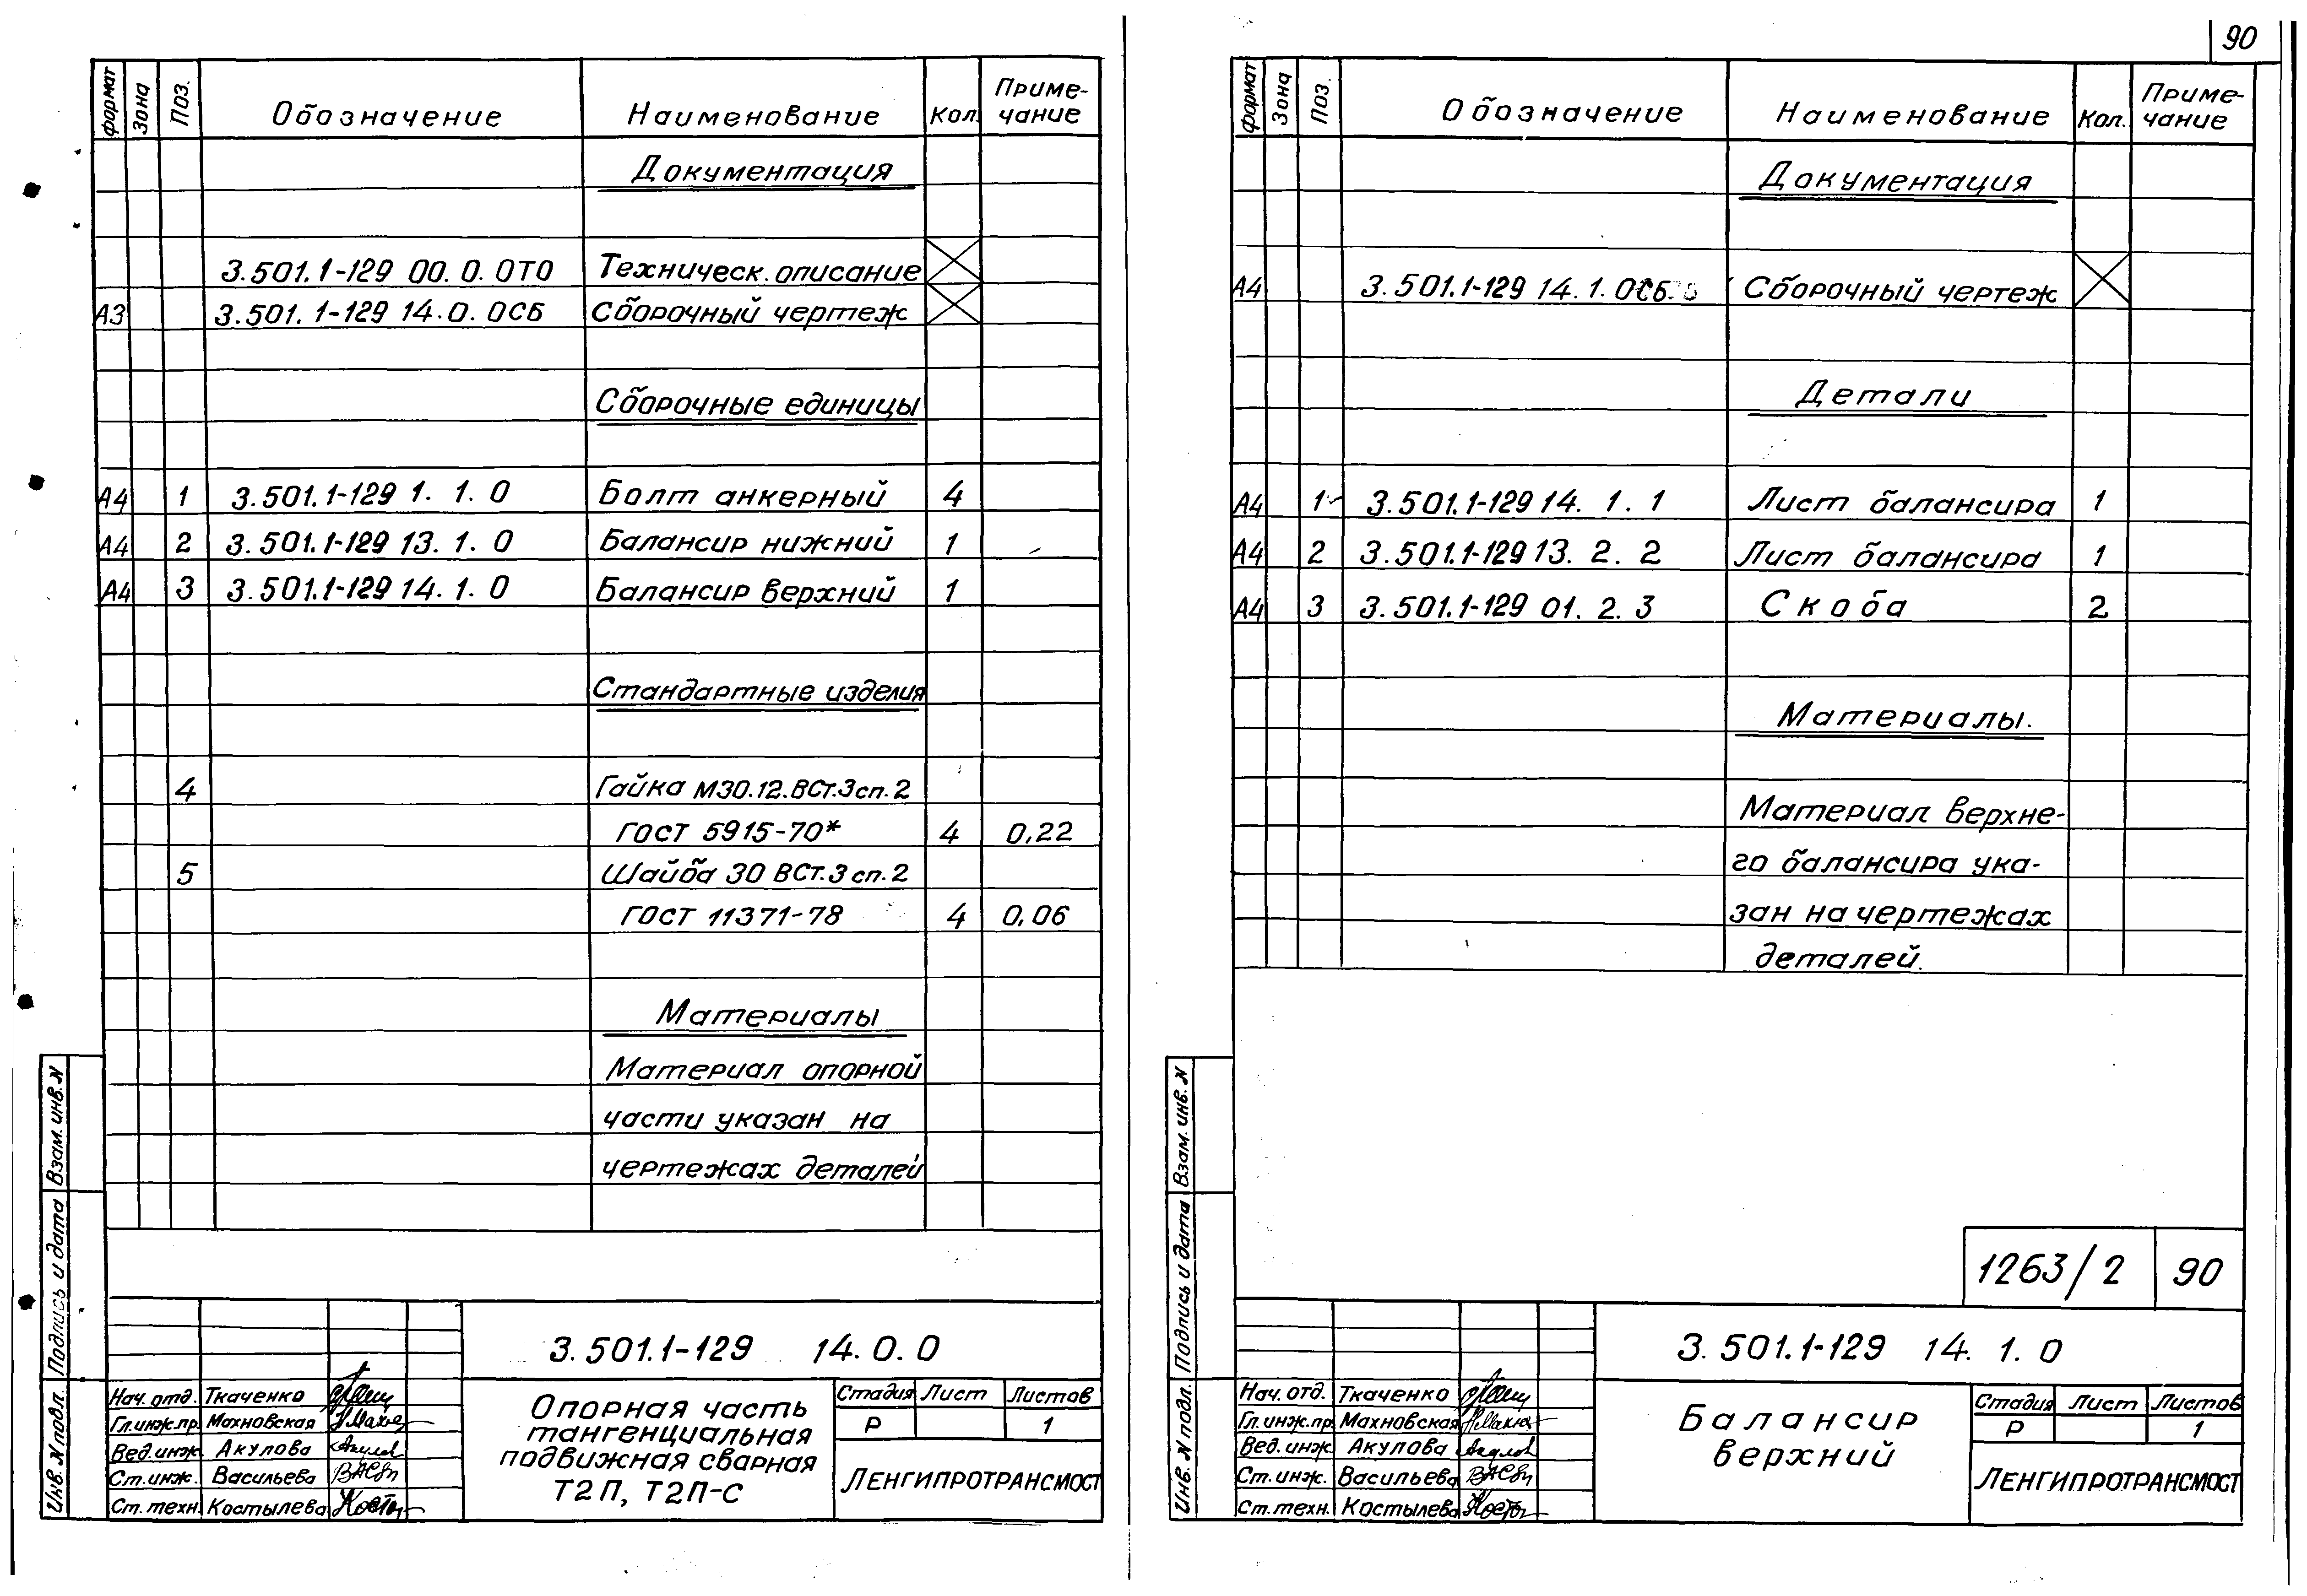 90
формат Зона Поз. Обозначение Наименование Кол. Приме-
чание
Документация
3.501.1-129 00.0.0ТО Техническ. описание
А3 3.501.1-129 14.0.0СБ Сборочный чертеж
Сборочные единицы
А4 1 3.501.1-129 1.1.0 Болт анкерный 4
А4 2 3.501.1-129 13.1.0 Балансир нижний 1
А4 3 3.501.1-129 14.1.0 Балансир верхний 1
Стандартные изделия
4 Гайка М30.12.ВСт.3сп.2
ГОСТ 5915-70* 4 0,22
5 Шайба 30 ВСт.3сп.2
ГОСТ 11371-78 4 0,06
Материалы
Материал опорной
части указан на
чертежах деталей
Взам. инв. N
Подпись и дата
Инв. N подл.
3.501.1-129 14.0.0
Нач. отд. Ткаченко
Гл.инж.пр. Махновская
Вед.инж. Акулова
Ст.инж. Васильева
Ст.техн. Костылева
Опорная часть
тангенциальная
подвижная сварная
Т2П, Т2П-С
Стадия Лист Листов
Р 1
ЛЕНГИПРОТРАНСМОСТ
формат Зона Поз. Обозначение Наименование Кол. Приме-
чание
Документация
А4 3.501.1-129 14.1.0СБ Сборочный чертеж
Детали
А4 1 3.501.1-129 14.1.1 Лист балансира 1
А4 2 3.501.1-129 13.2.2 Лист балансира 1
А4 3 3.501.1-129 01.2.3 Скоба 2
Материалы.
Материал верхне-
го балансира ука-
зан на чертежах
деталей.
Взам. инв. N
Подпись и дата
Инв. N подл.
1263/2 90
3.501.1-129 14.1.0
Нач. отд. Ткаченко
Гл.инж.пр. Махновская
Вед.инж. Акулова
Ст.инж. Васильева
Ст.техн. Костылева
Балансир
верхний
Стадия Лист Листов
Р 1
ЛЕНГИПРОТРАНСМОСТ